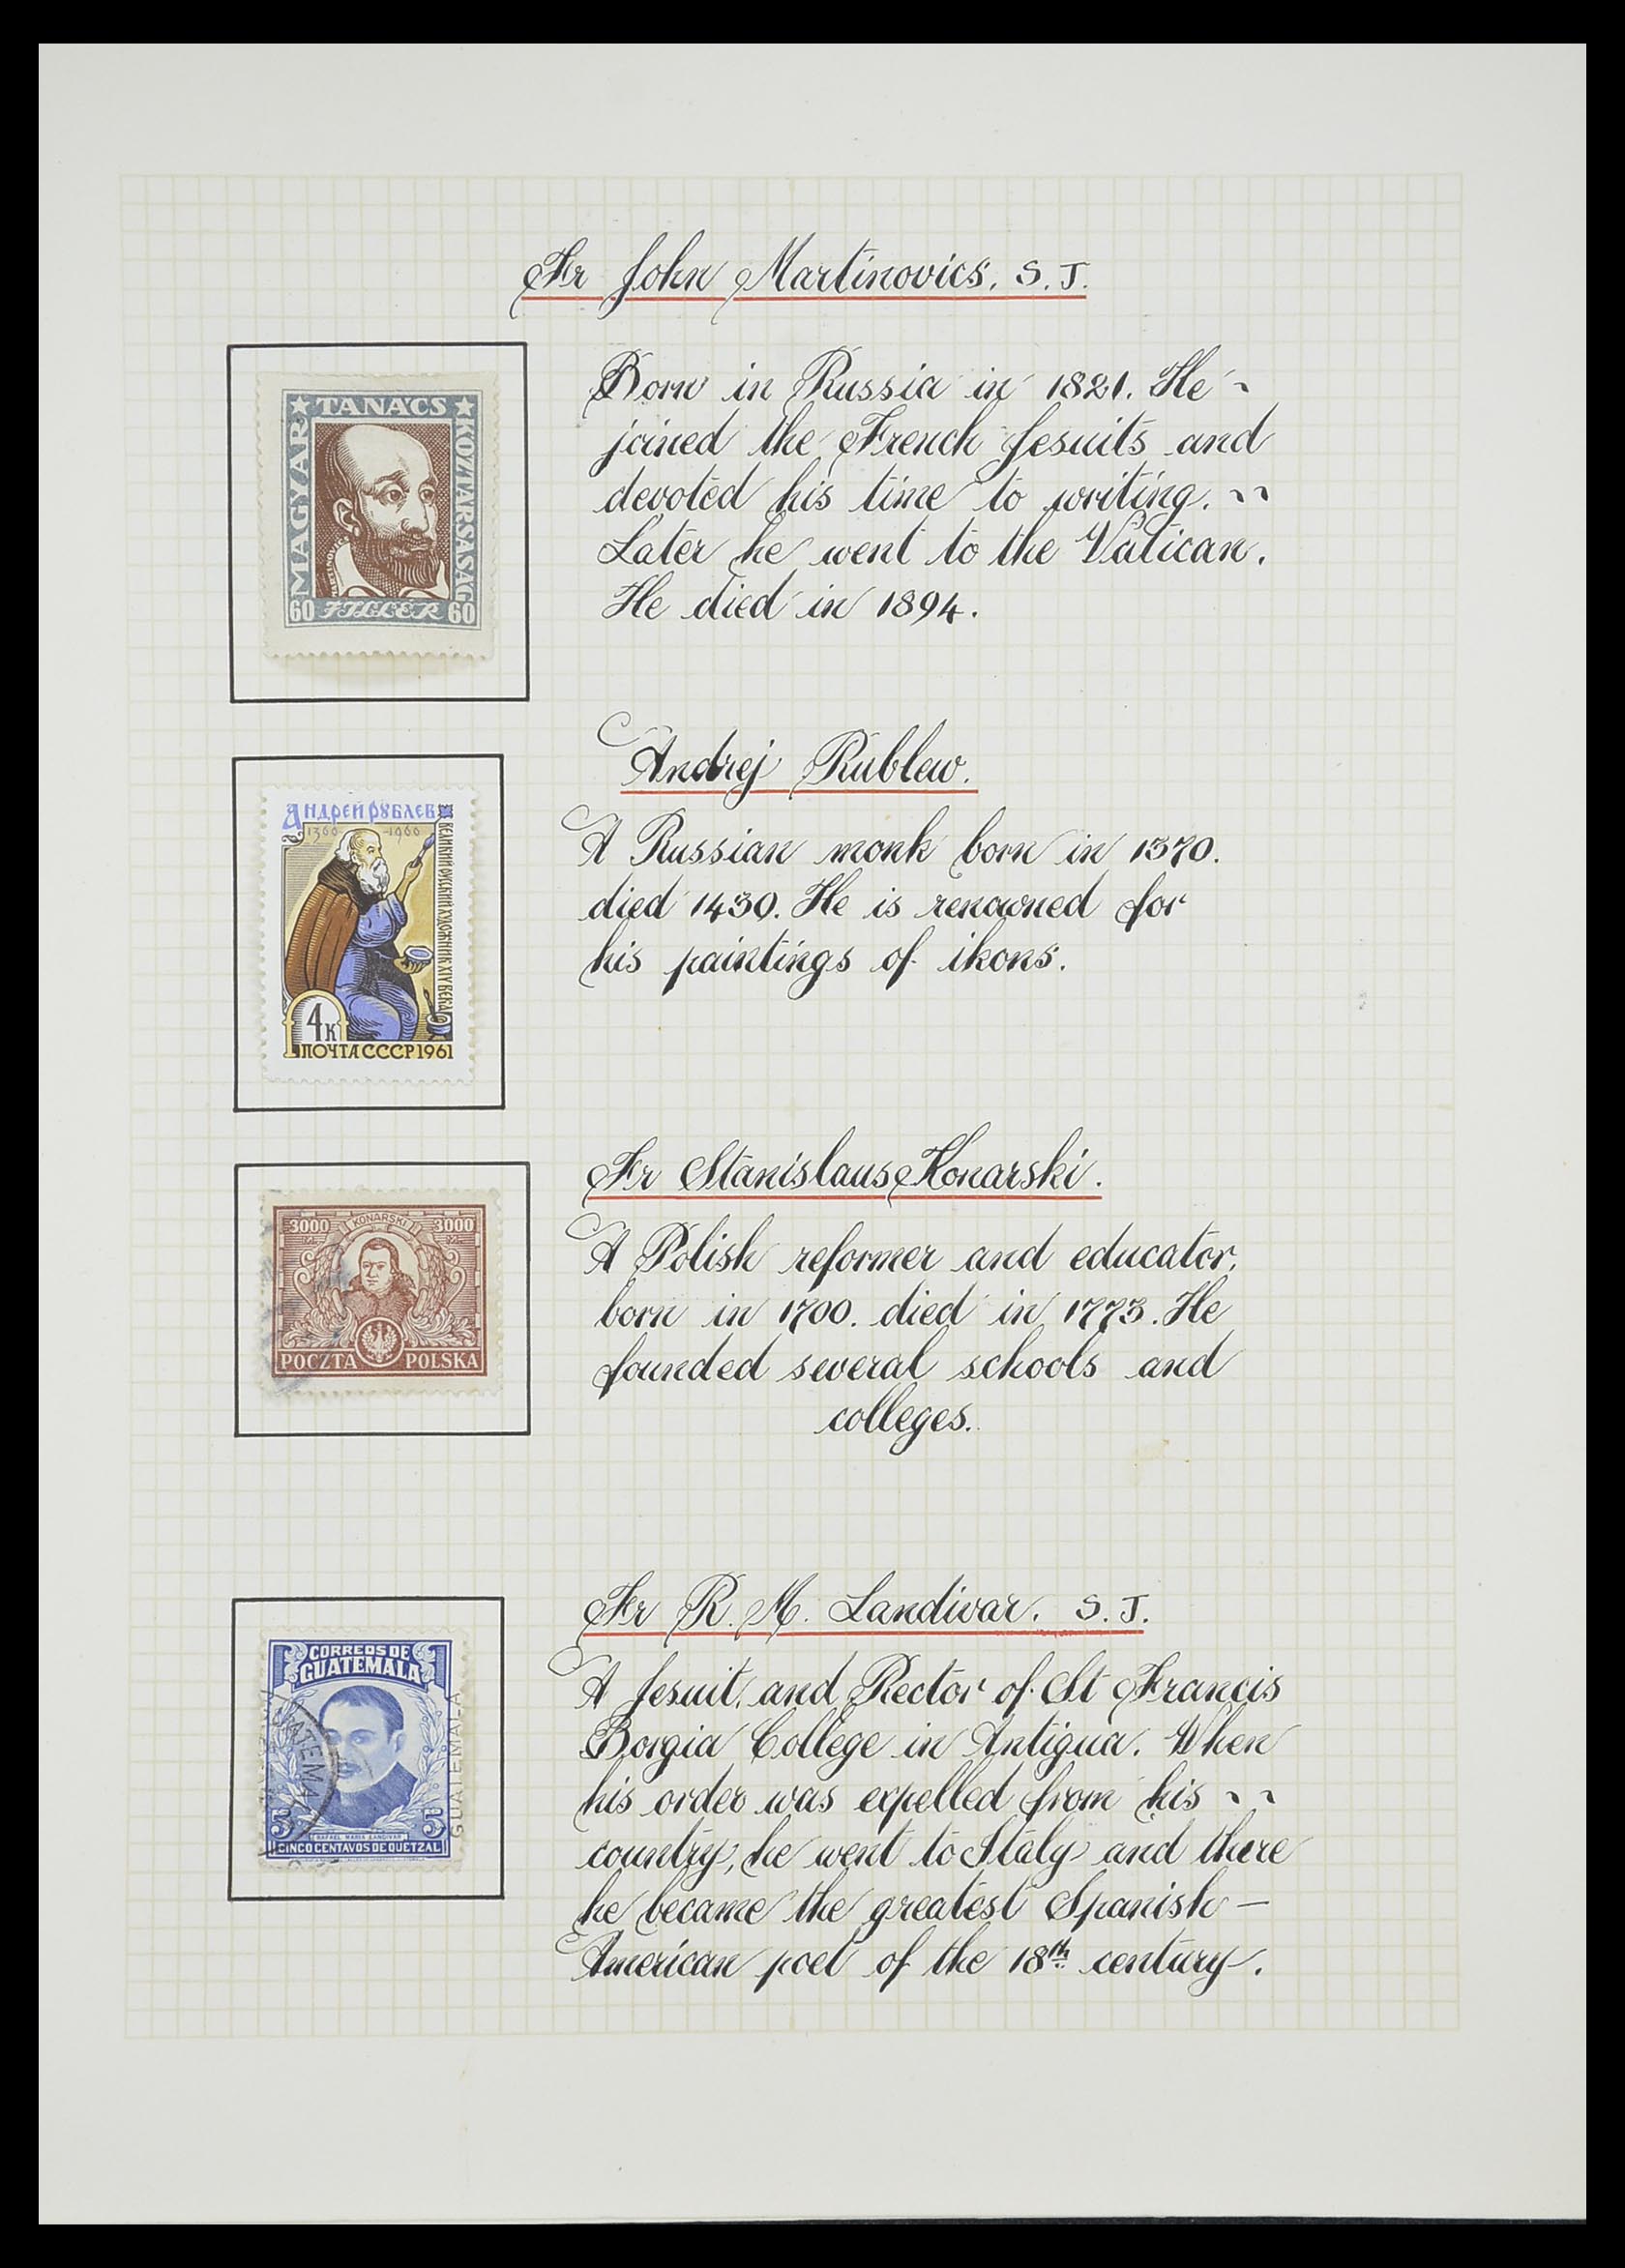 Fr John Martinovics. S.J.
★ TANÁCS ★
MAGYAR
KÖZTÁRSASÁG
MARTINOVICS
60 FILLÉR 60
Born in Russia in 1821. He ~
joined the French Jesuits and
devoted his time to writing. ~~
Later he went to the Vatican.
He died in 1894.
Andrej Rublew.
АНДРЕЙ РУБЛЕВ
1360-1960
ВЕЛИКИЙ РУССКИЙ ХУДОЖНИК XIV ВЕКА
4к
ПОЧТА СССР 1961
A Russian monk born in 1370.
died 1430. He is renowned for
his paintings of ikons.
Fr Stanislaus Konarski.
3000 KONARSKI 3000
POCZTA POLSKA
A Polish reformer and educator,
born in 1700. died in 1773. He
founded several schools and
colleges.
Fr R. M. Landivar. S.J.
CORREOS DE
GUATEMALA
GUATEMALA
5 5
RAFAEL MARIA LANDIVAR
CINCO CENTAVOS DE QUETZAL
A Jesuit, and Rector of St Francis
Borgia College in Antigua. When
his order was expelled from his ~~
country, he went to Italy and there
he became the greatest Spanish —
American poet of the 18th century.